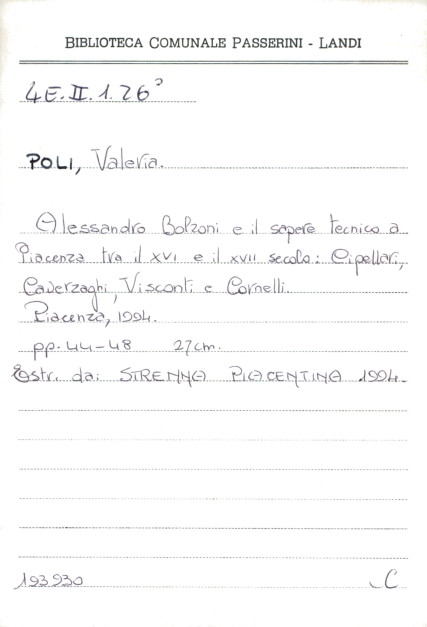 BIBLIOTECA COMUNALE PASSERINI - LANDI
4E.II.1.26³
POLI, Valeria.
Alessandro Bolzoni e il sapere tecnico a
Piacenza tra il XVI e il XVII secolo: Cipellari,
Caverzaghi, Visconti e Cornelli.
Piacenza, 1994.
pp. 44-48 27cm.
Estr. da: STRENNA PIACENTINA 1994.
193930 C